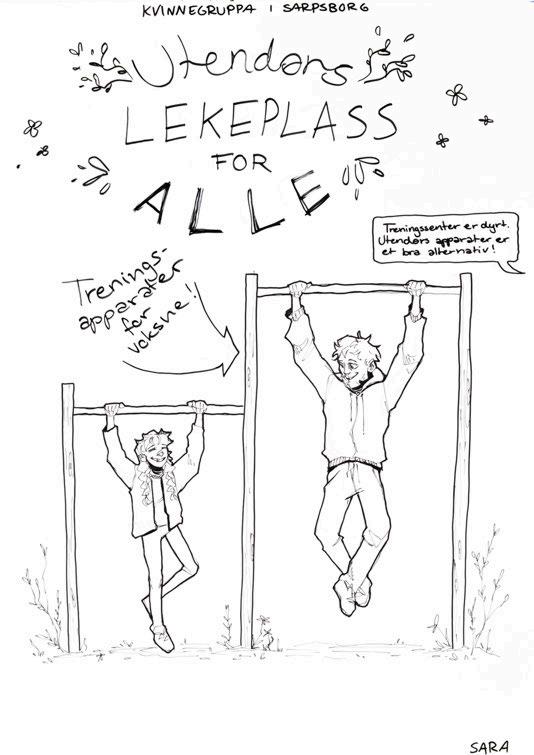 KVINNEGRUPPA I SARPSBORG
Utendørs
LEKEPLASS
FOR
ALLE
Treningssenter er dyrt.
Utendørs apparater er
et bra alternativ!
Trenings-
apparater
for
voksne!
SARA